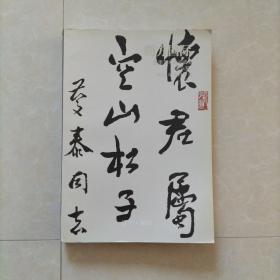 懷君屬
空山松子
蔓泰同志